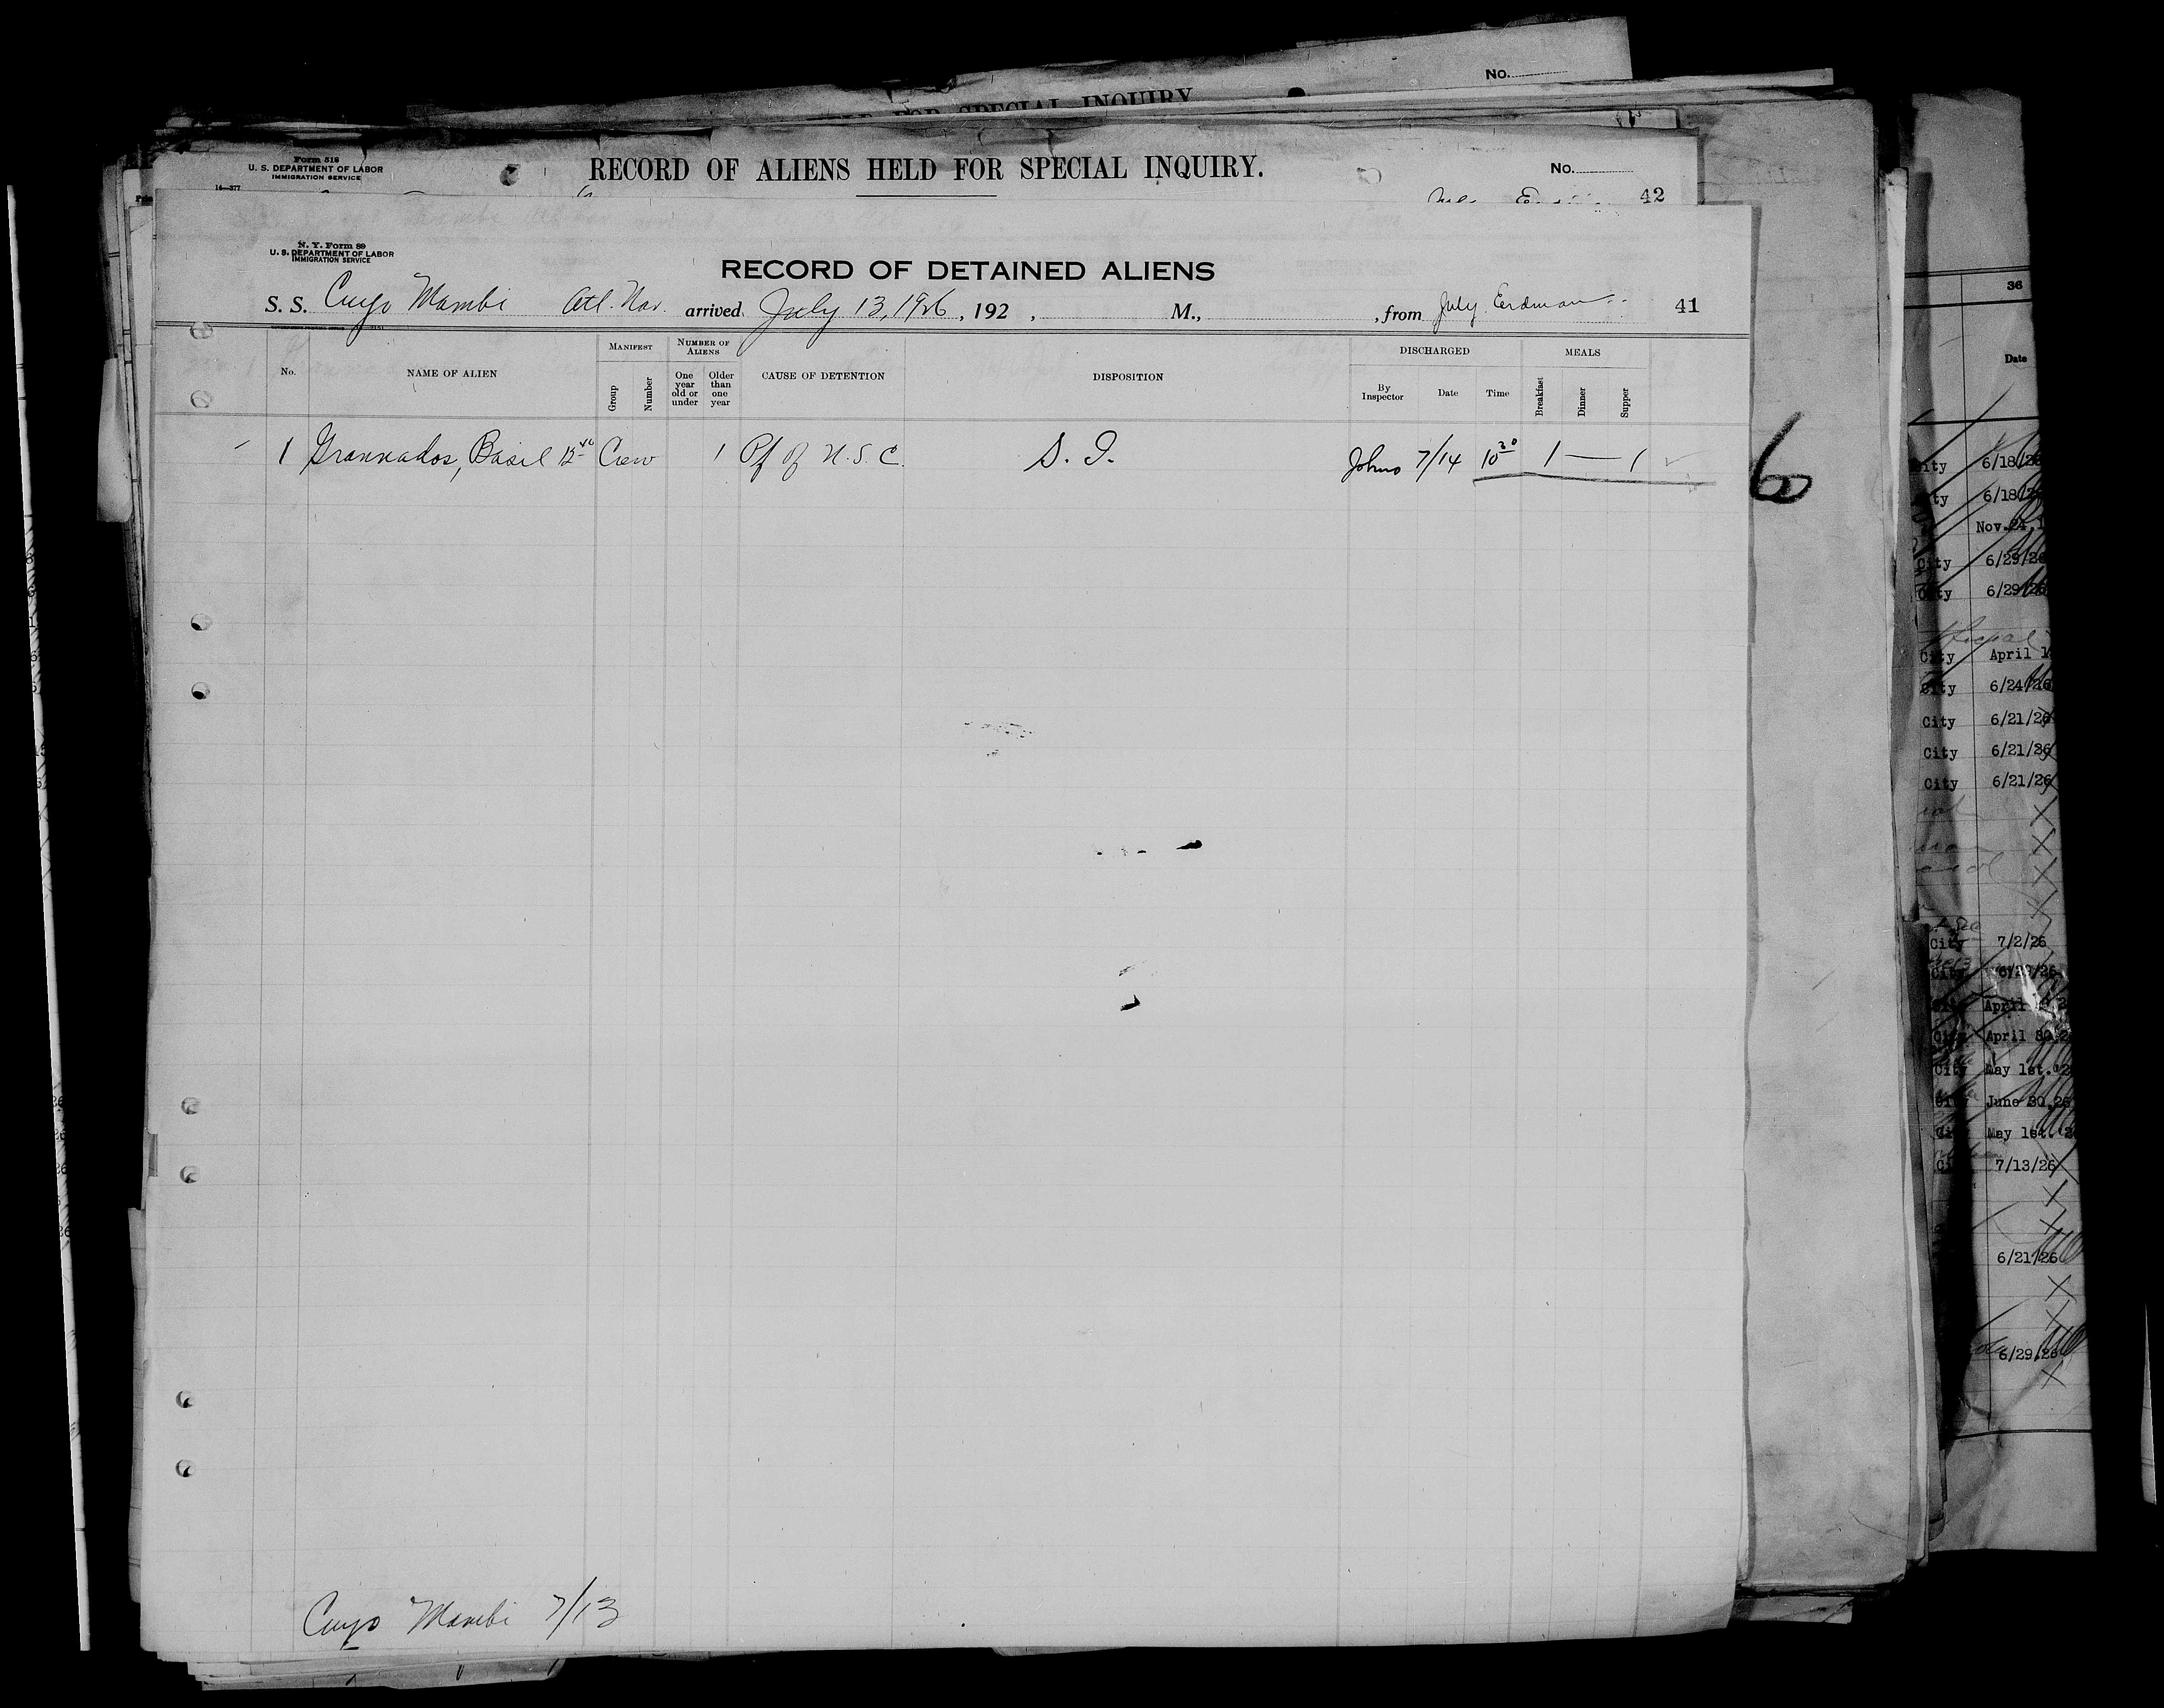 No.
FOR SPECIAL INQUIRY
Form 518
U. S. DEPARTMENT OF LABOR
IMMIGRATION SERVICE
14—377
RECORD OF ALIENS HELD FOR SPECIAL INQUIRY.
No.
42
N. Y. Form 89
U. S. DEPARTMENT OF LABOR
IMMIGRATION SERVICE
RECORD OF DETAINED ALIENS
S. S. Cuyo Mambi Atl. Nav. arrived July 13, 1926, 192 , M., , from July Erdman 41
No.
NAME OF ALIEN
MANIFEST
Group
Number
NUMBER OF ALIENS
One year old or under
Older than one year
CAUSE OF DETENTION
DISPOSITION
DISCHARGED
By Inspector
Date
Time
MEALS
Breakfast
Dinner
Supper
1 Grannados, Basil 12 40 Crew 1 Pf of U. S. C. S. I. Johns 7/14 10 30 1 — 1
Cuyo Mambi 7/13
6
36
Date
City 6/18/26
City 6/18/26
Nov. 24, 1
City 6/29/26
City 6/29/26
City April 1
City 6/24/26
City 6/21/26
City 6/21/26
City 6/21/26
City 7/2/26
City
April
City April 30, 2
City May 1st. '2
City June 30, 26
City May 1st. '2
7/13/26
6/21/26
6/29/26